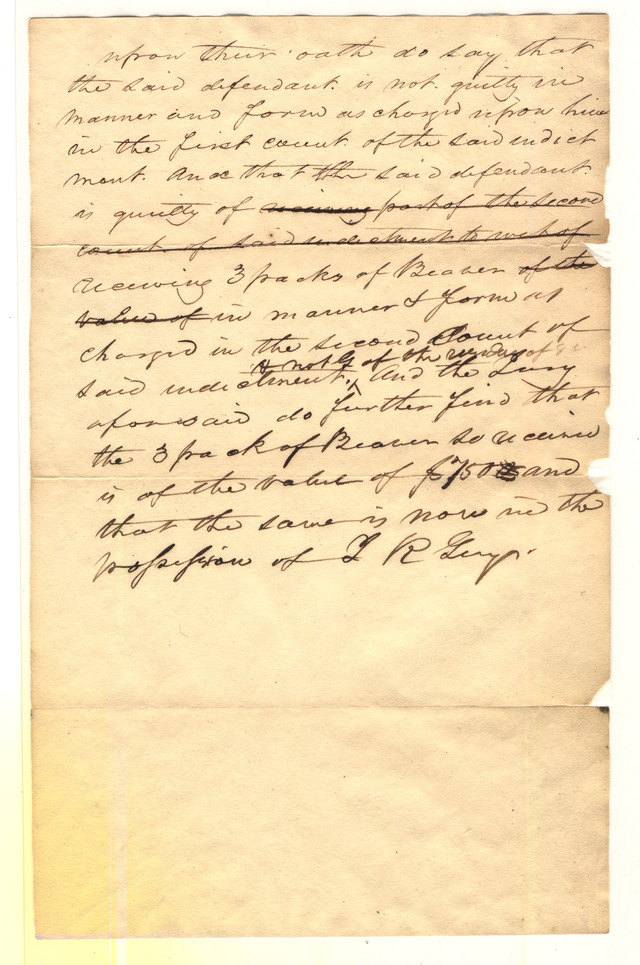 upon their oath do say that
the said defendant is not guilty in
manner and form as charged upon him
in the first count of the said indict
ment. And that the said defendant
is guilty of receiving part of the second
count of said indictment to wit of
receiving 3 packs of Beaver of the
value of in manner & form as
charged in the second Count of
& not G of the residue of
said indictment. And the Jury
aforesaid do further find that
the 3 pack of Beaver so received
is of the value of $750 and
that the same is now in the
possession of